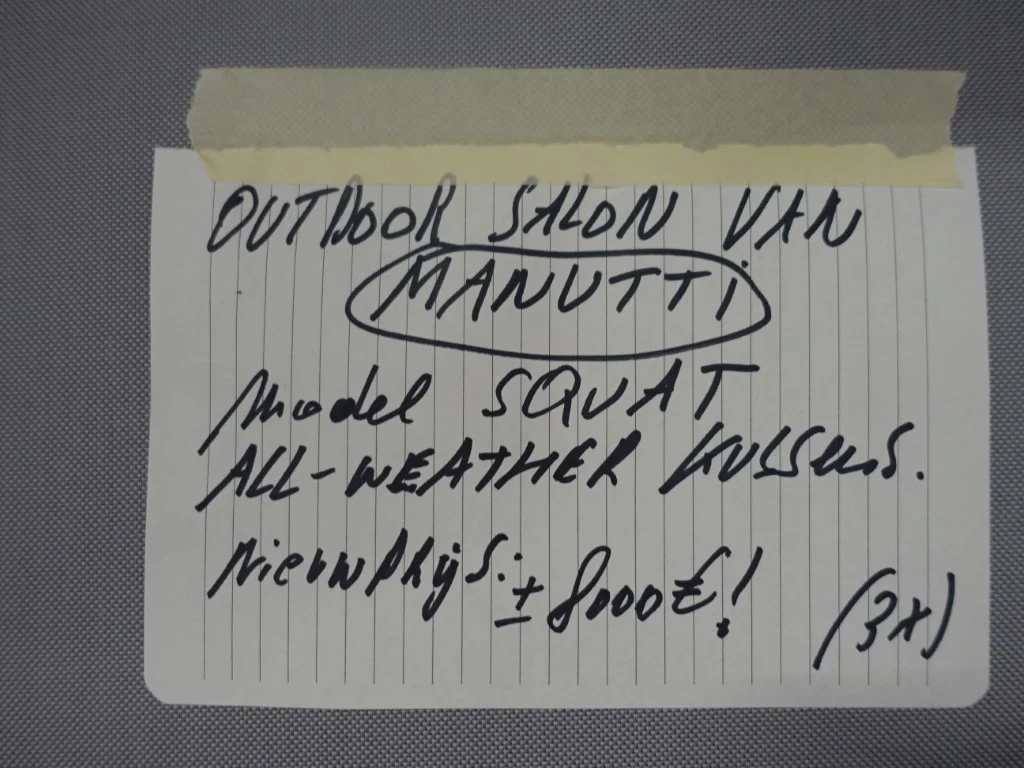 OUTDOOR SALON VAN
MANUTTi
Model SQUAT
ALL-WEATHER KUSSENS.
Nieuwprijs: ± 8000€!
(3x)